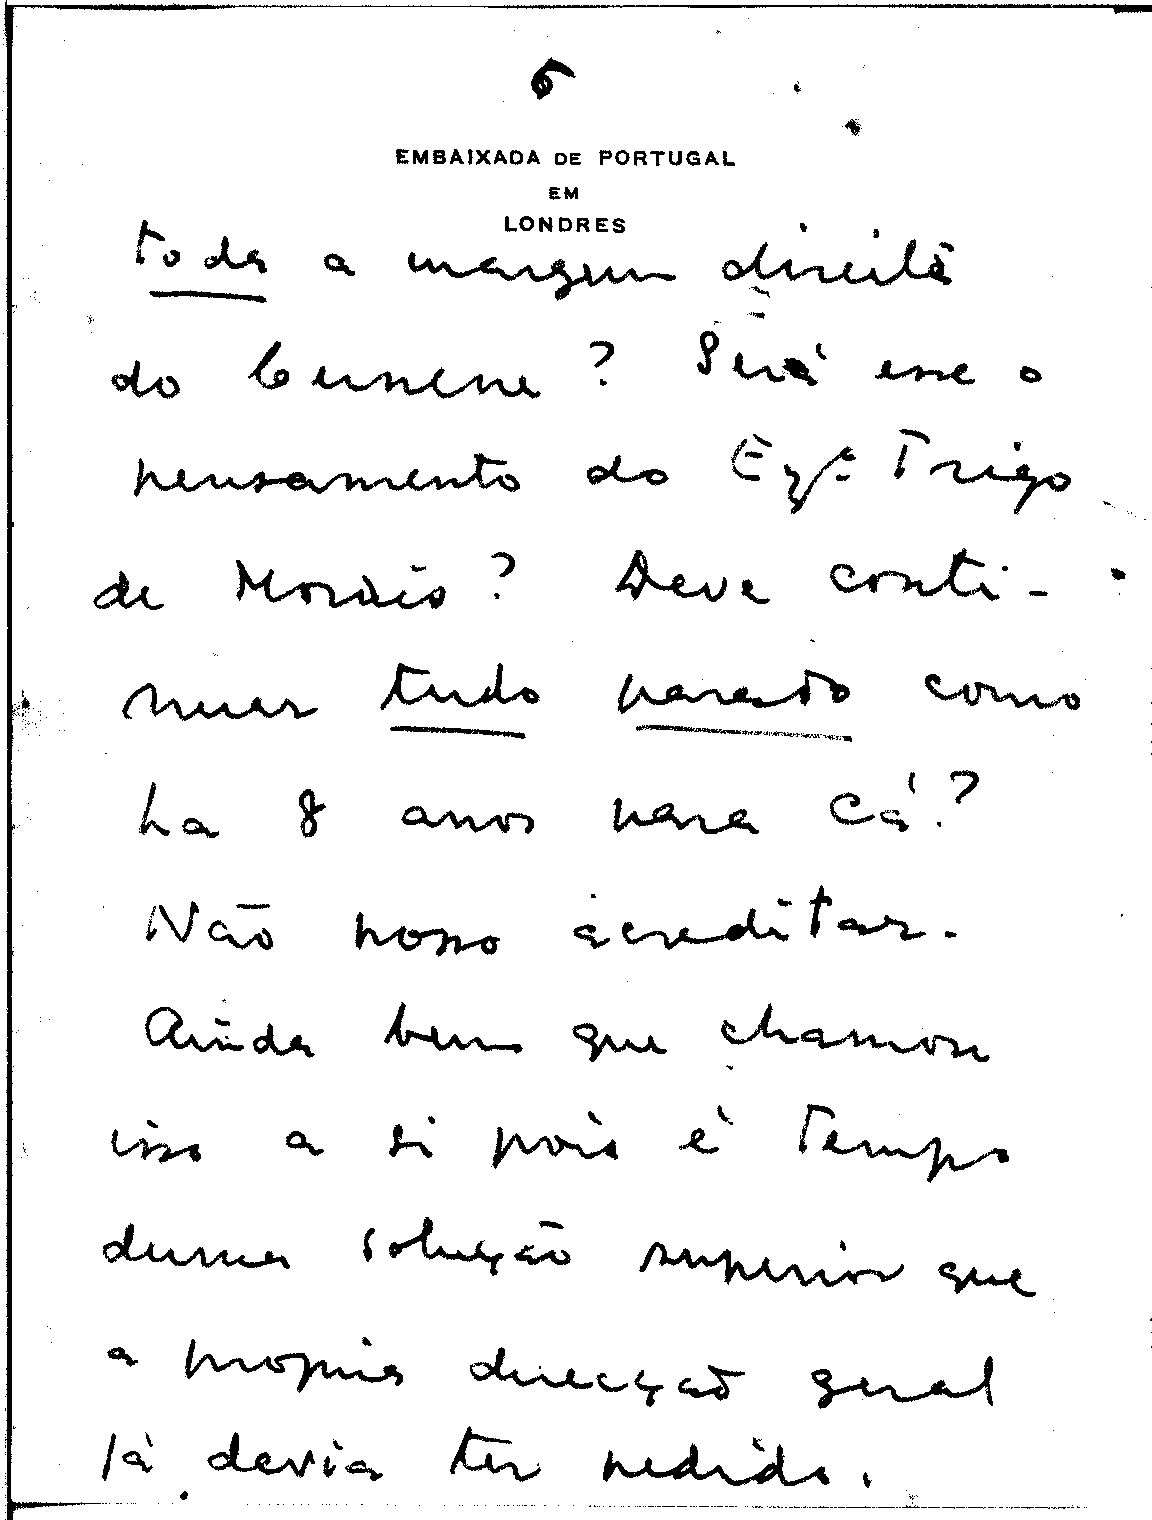 6
EMBAIXADA DE PORTUGAL
EM
LONDRES
toda a margem direita
do Cunene? Será esse o
pensamento do Engº Trigo
de Morais? Deve conti-
nuar tudo parado como
ha 8 anos para cá?
Não posso acreditar.
Ainda bem que chamou
isso a si pois é tempo
duma solução superior que
a propria direcção geral
já devia ter pedido.